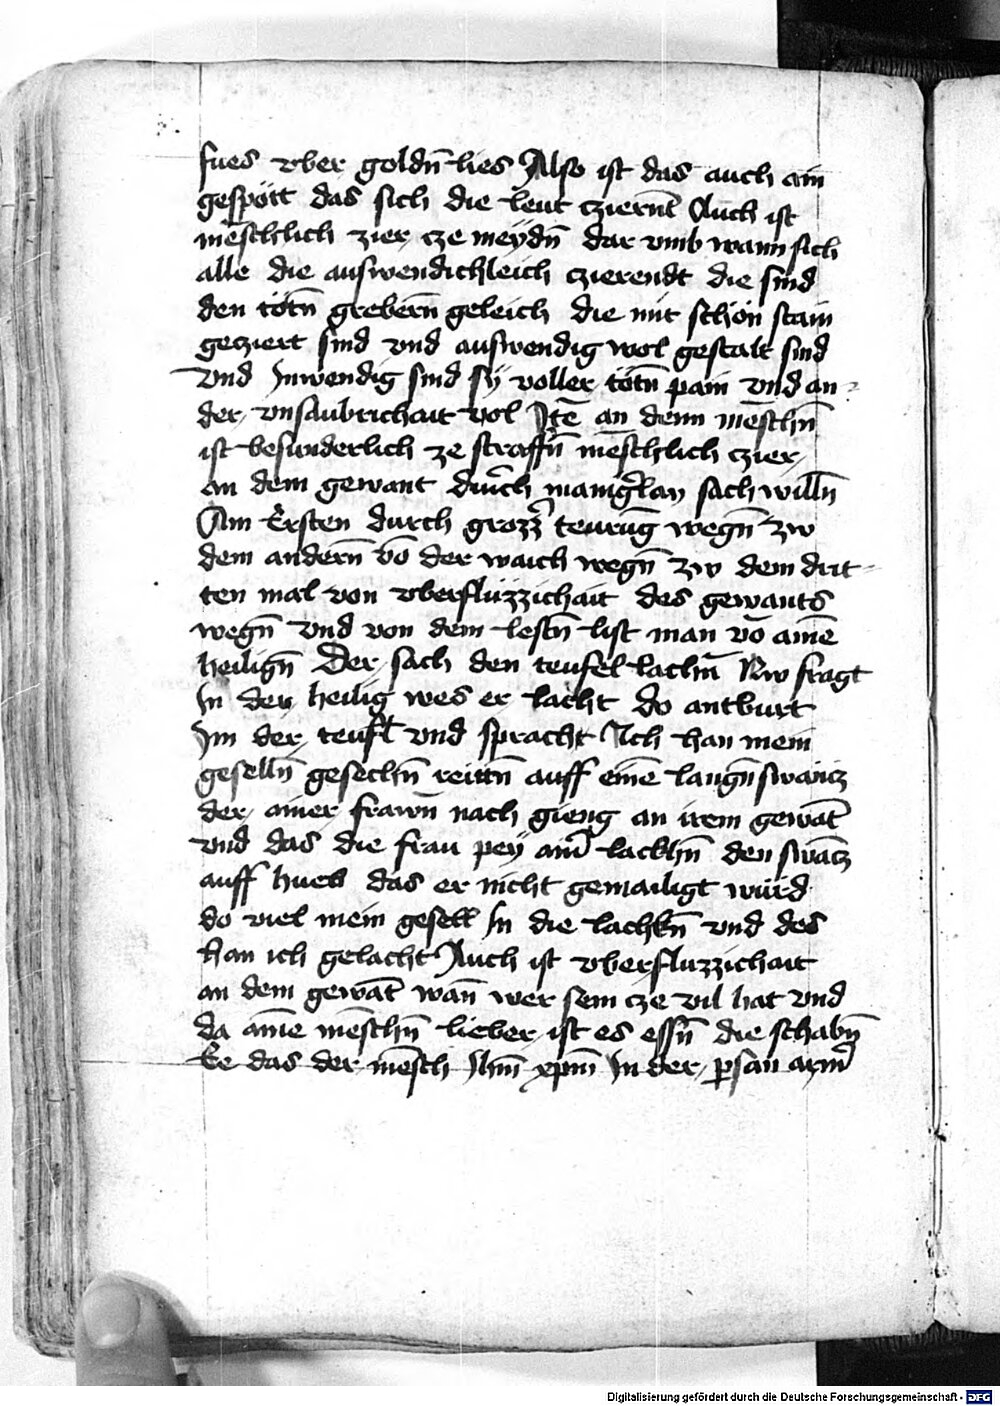 fues vber goldn̄ lies Also ist das auch ain
gespött das sich die leut czierent Auch ist
mēschlich zier cze meydn̄ dar vmb wann sich
alle die auswendichleich czierendt die sind
den tötn̄ grebern̄ geleich die mit schön stain
geziert sind vnd auswendig wol gestalt sind
Vnd Inwendig sind sy voller tötn̄ pain vnd an
der vnsaubrichait vol Itē an denn mēschn̄
ist besunderlich ze straffn̄ mēschlich czier
an dem gewant durch manigerlay sach willn̄
Am Ersten durch grozzer teurūg wegn̄ zw
dem andern̄ vō der waich wegn̄ zw dem drit
ten mal von vberflüzzichait des gewants
wegn̄ Vnd von dem lestn̄ list man vō aine
heilign̄ Der sach den teufel lachn̄ Nw fragt
In der heilig wes er lacht do antburt
Im der teufl vnd spracht Ich han mein
geselln̄ gesechn̄ reittn̄ auff eine langn̄ swancz
der ainer frawn̄ nach gieng an irem gewāt
vnd das die frau pey ainr̄ lackhn̄ den swācz
auff hueb das er nicht gemailigt würd
do viel mein gesell In die lachkn̄ vnd des
han ich gelacht Auch ist vberfluzzichait
an dem gewāt wan̄ wer sein cze vil hat vnd
da aine mēschn̄ lieber ist es essn̄ die schabn̄
Ee das der mēsch Ihm̄ xpm̄ In der psan armr̄
Digitalisierung gefördert durch die Deutsche Forschungsgemeinschaft - DFG